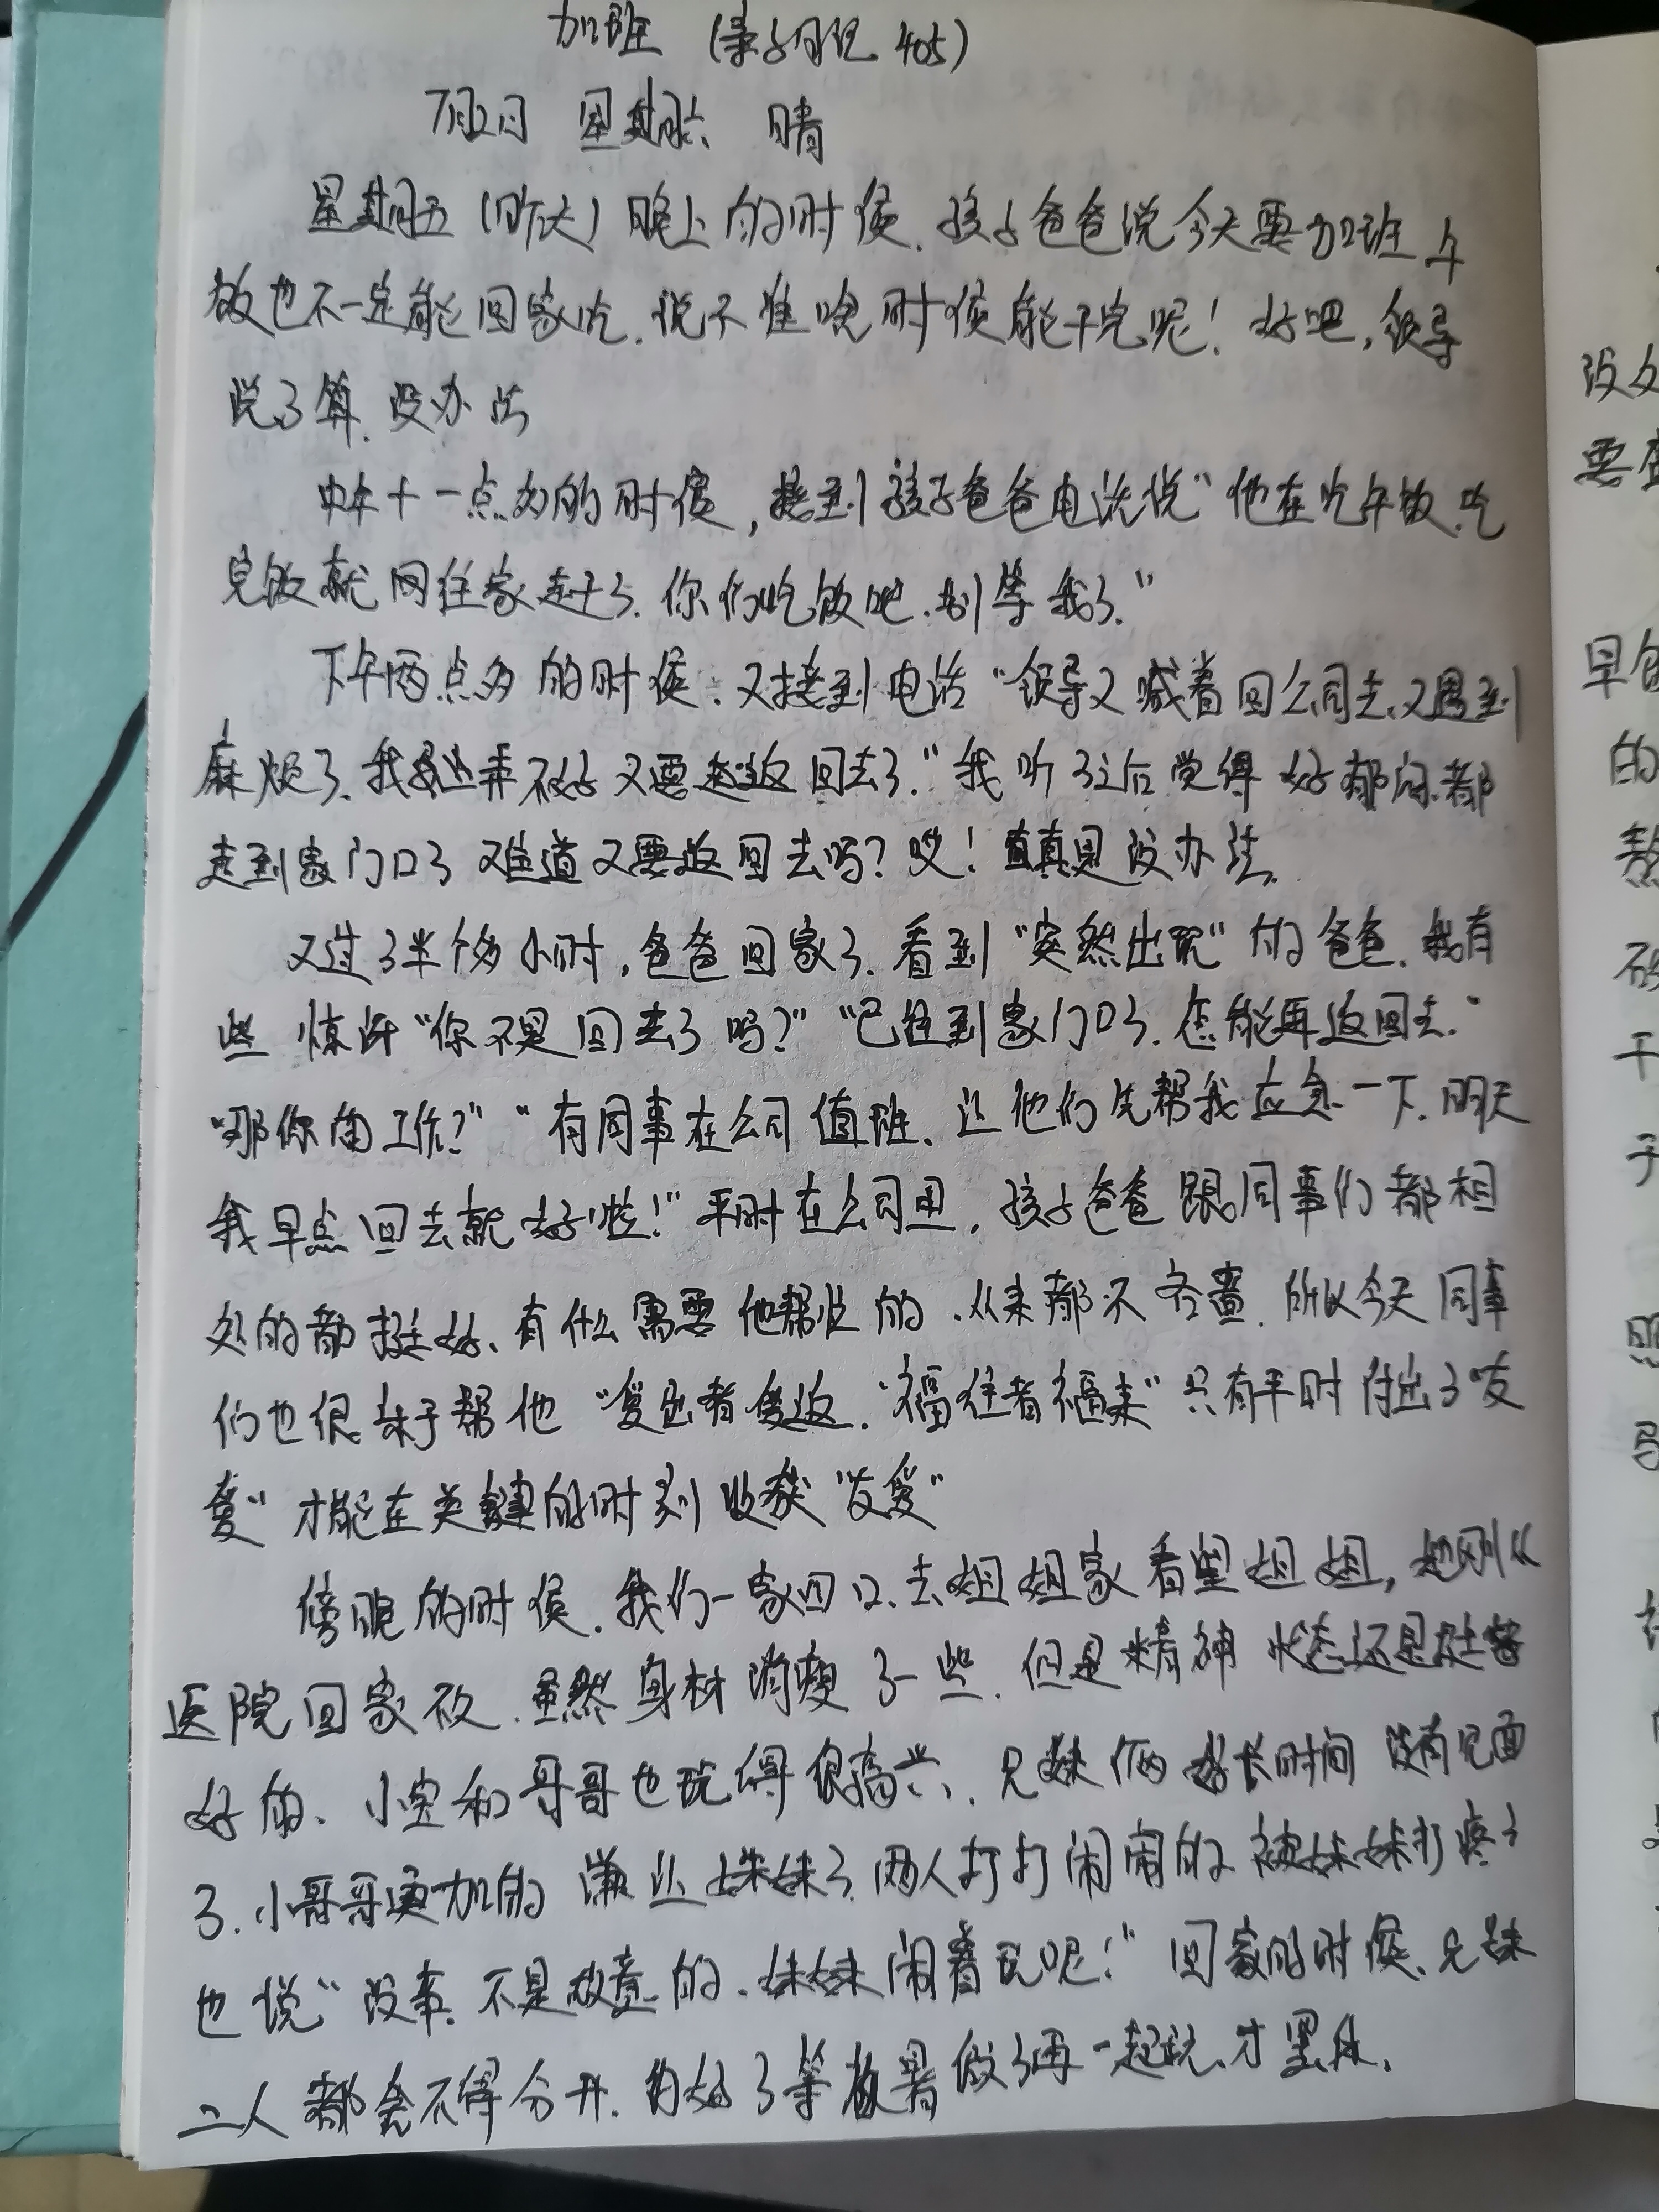 加班 (亲子日记 405)
7月2日 星期六 晴
星期五(昨天)晚上的时候.孩子爸爸说今天要加班 午
饭也不一定能回家吃.说不准啥时候能干完呢!好吧,领导
说了算.没办法
中午十一点多的时候,接到孩子爸爸电话说“他在吃午饭.吃
完饭就网往家赶了.你们吃饭吧.别等我了.”
下午两点多的时候.又接到电话“领导又喊着回公司去、又遇到
麻烦了、我弄不好又要返回去了.”我听了之后觉得好郁闷.都
走到家门口了 难道又要返回去吗?哎!真是没办法.
又过了半个多小时,爸爸回家了.看到“突然出现”的爸爸.我有
些惊讶“你不是回去了吗?”“已经到家门口了.怎能再返回去.”
“那你的工作?”“有同事在公司值班、让他们先帮我应急一下.明天
我早点回去就好啦!”平时在公司里,孩子爸爸跟同事们都相
处的都挺好、有什么需要他帮忙的.从来都不吝啬.所以今天同事
们也很乐于帮他“爱出者爱返.“福往者福来”只有平时付出了“友
爱”才能在关键的时刻收获“友爱”
傍晚的时候.我们一家四口.去姐姐家看望姐姐,她刚从
医院回家 虽然身材消瘦了一些.但是精神状态还是挺
好的、小宝和哥哥也玩得很高兴、兄妹俩好长时间没有见面
了.小哥哥更加的谦让妹妹了.两人打打闹闹的 被妹妹打疼了
也说“没事.不是故意的.妹妹闹着玩呢!”回家的时候、兄妹
二人都舍不得分开.约好了等放暑假了再一起玩、才罢休.
没
要
早
的
熬
干
子
照